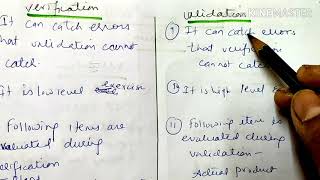 verification
It can catch errors
that validation cannot
catch.
It is low level exercise
Following items are
evaluated during
verification
Plans
validation
It can catch errors
that verification
cannot catch
It is high level
Following item is
evaluated during
validation -
Actual product
KINEMASTER